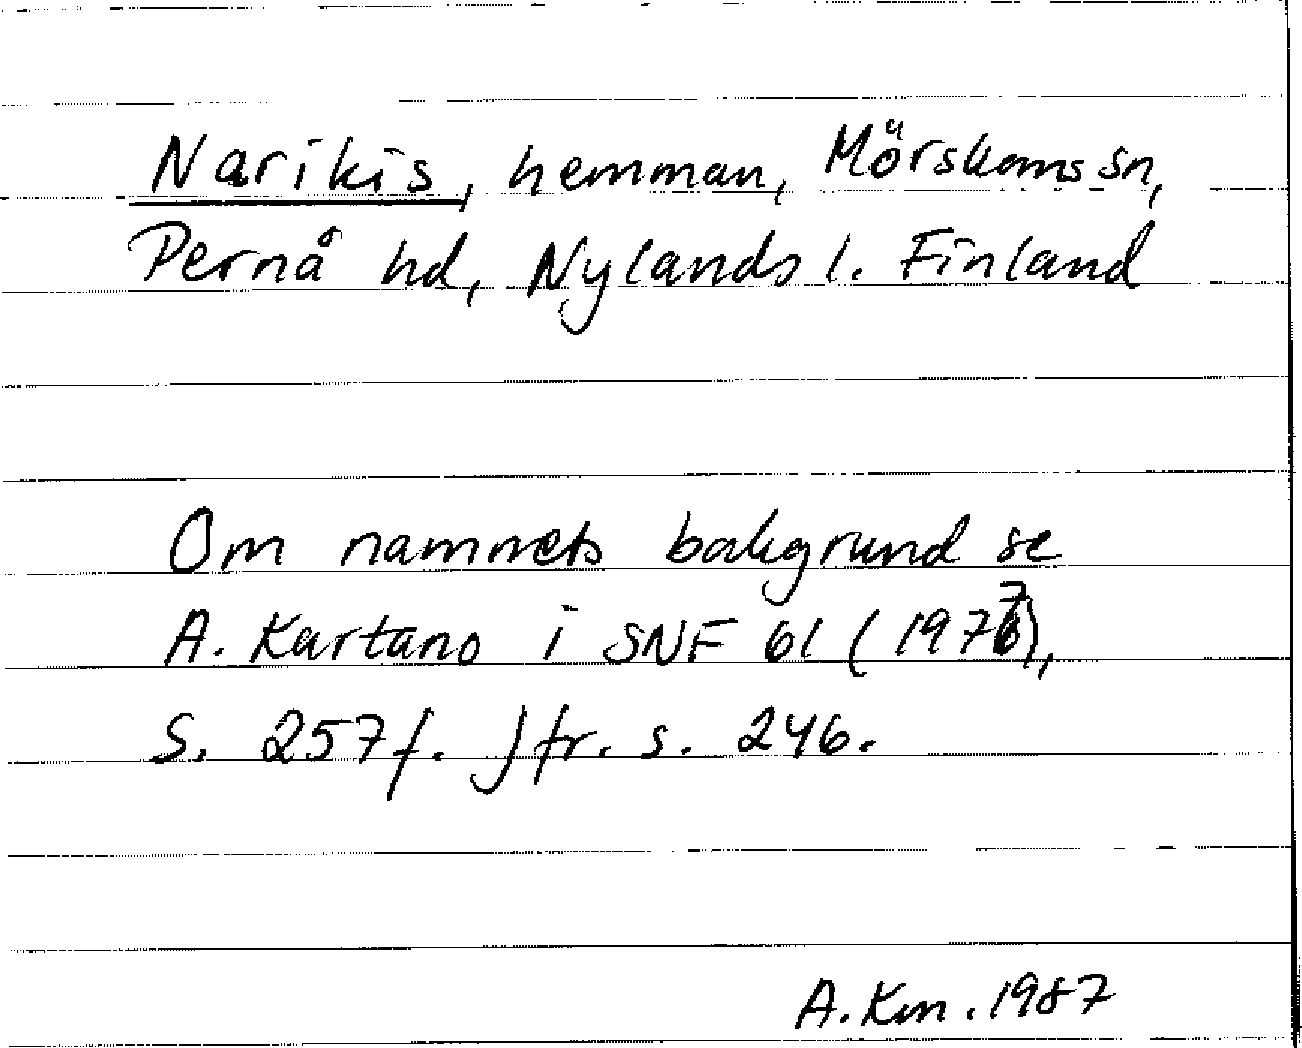 Narikis, hemman, Mörskoms sn,
Pernå hd, Nylands l. Finland
Om namnets bakgrund se
A. Kartano i SNF 61 (1977),
s. 257f. Jfr. s. 246.
A. Km. 1987